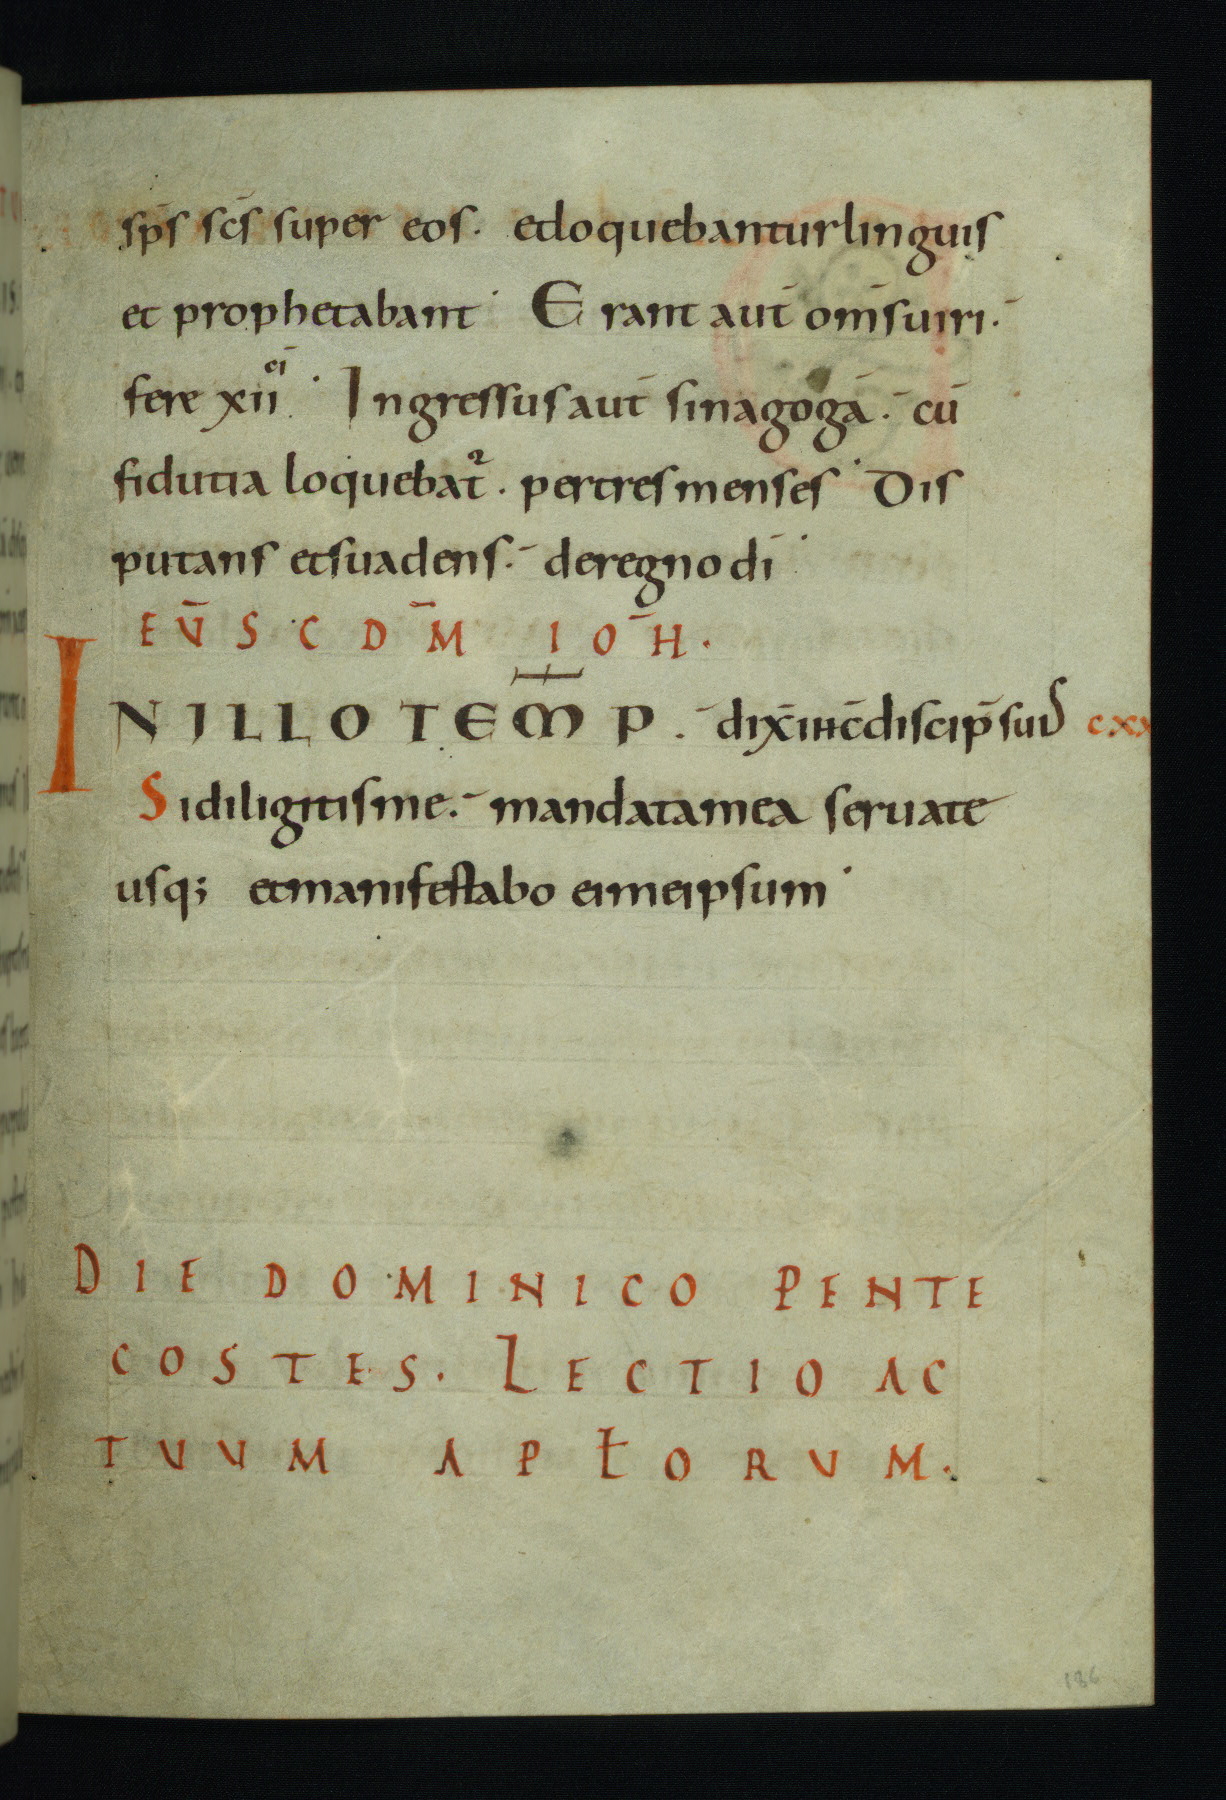 sp̄s sc̄s super eos. et loquebantur linguis
et prophetabant. Erant aut̄ om̄s uiri.
fere xii ei. Ingressus aut̄ sinagogā. cū
fidutia loquebat̄. per tres menses. Dis
putans et suadens. de regno dī.
EV̄ SCDM̄ IOH̄.
IN ILLO TEMP. dix̄ ihc̄ discip̄ suis CXX
Si diligitis me. mandata mea seruate
usq; et manifestabo ei meipsum.
DIE DOMINICO PENTE
COSTES. LECTIO AC
TUUM APŁORUM.
186